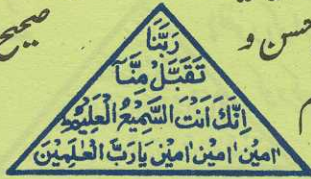 صحیح
حسن و
رَبَّنَا
تَقَبَّلْ مِنَّآ
اِنَّكَ اَنْتَ السَّمِيْعُ الْعَلِيْمُ
اٰمِيْن اٰمِيْن اٰمِيْن يَارَبَّ الْعٰلَمِيْنَ